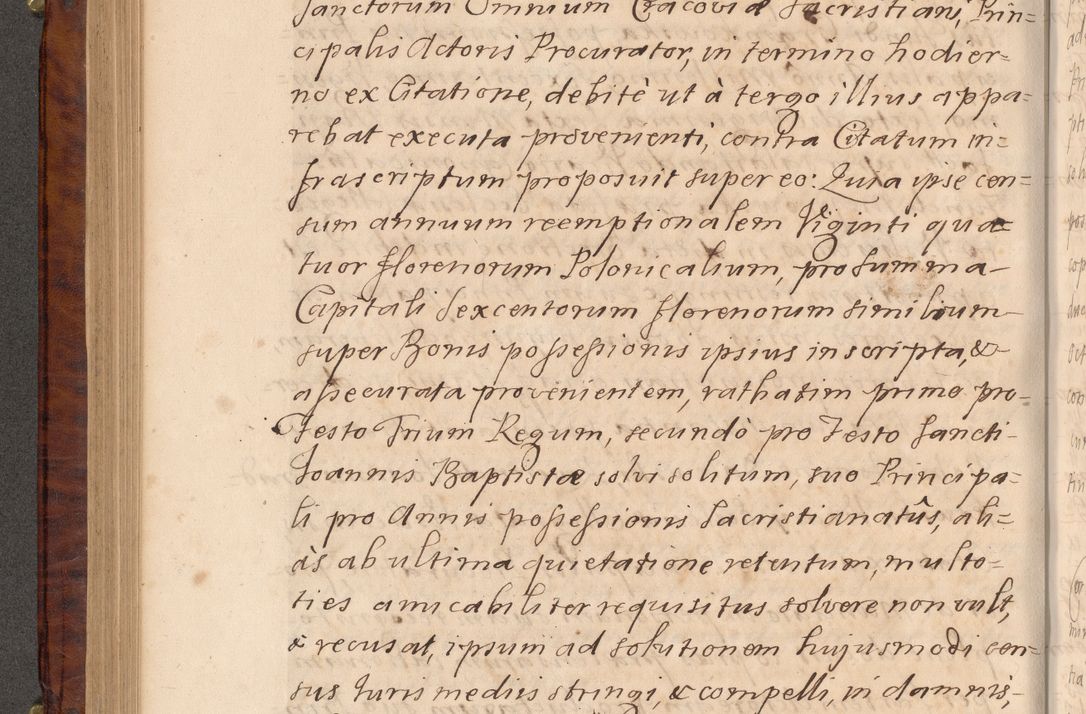 Sanctorum Omnium Cracoviæ Sacristiani, Prin=
cipalis Actoris Procurator, in termino hodier=
no ex Citatione, debitè ut à tergo illius appa=
rebat executa provenienti, contra Citatum in=
frascriptum proposuit super eo: Quia ipse cen=
sum annuum reemptionalem Viginti qua=
tuor florenorum Polonicalium, pro summa
Capitali Sexcentorum florenorum similium
super Bonis possessionis ipsius inscripta, &
assecurata provenientem, rathatim primo pro=
Festo Trium Regum, secundò pro Festo Sancti
Joannis Baptistæ solvi solitum, suo Principa=
li pro Annis possessionis Sacristianatûs, ali=
às ab ultima quietatione retentum, multo=
ties amicabiliter requisitus solvere non vult,
& recusat, ipsum ad solutionem hujusmodi cen=
sus Juris mediis stringi, & compelli, in damnis,